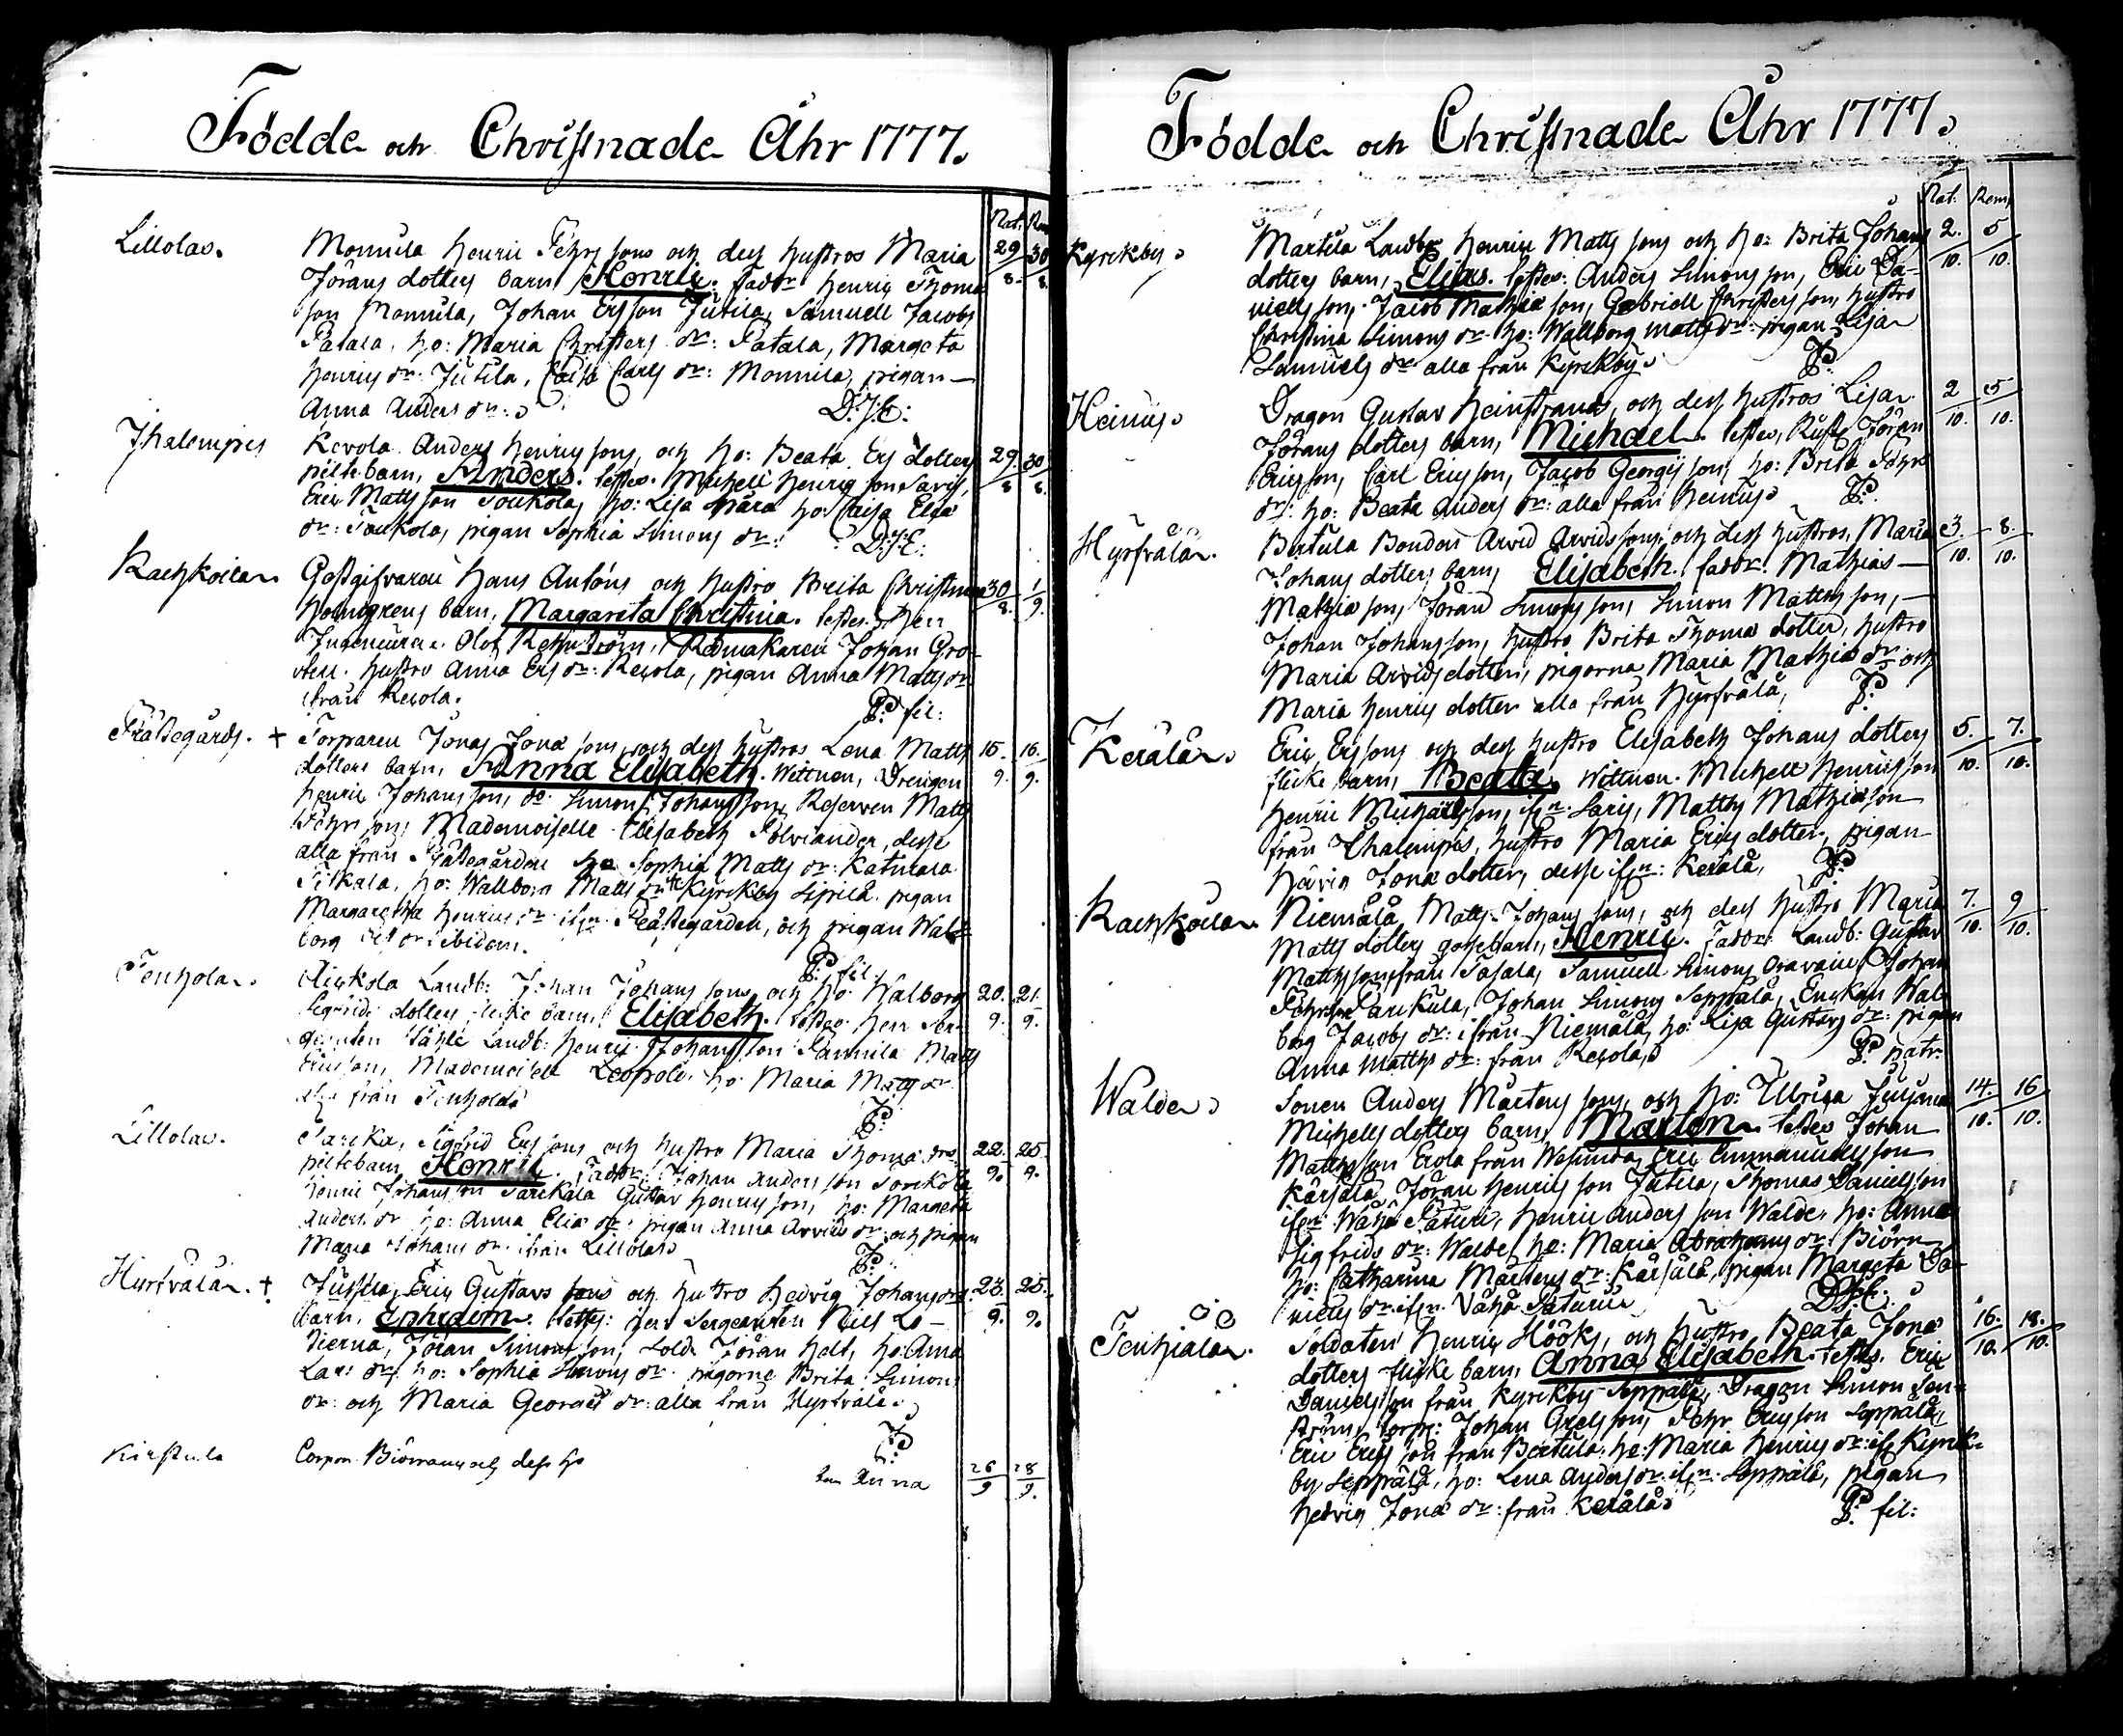 Födde och Christnade Åhr 1777.
Nat: Ren
Lillola. Monnila Henric Pehrs sons och dess hustros Maria 29/8. 30/8.
Jörans dotters barn Henric. Fadd:r Henric Thomæ
son Monnila, Johan Ers son Jutila, Samuell Jacobs
Patala, ho: Maria Christers dr: Patala, Margeta
Henrics dr: Jutila, Caisa Carls dr: Monnila, pigan
Anna Anders dr: D.J.E:
Ihalempis Kevola Anders Henrics sons, och ho: Beata Ers dotters 29/8 30/8.
piltebarn, Anders. testes. Michell Henrics son Saris,
Eric Matts son Soukola, ho: Lisa ho: Caisa Eliæ
dr: Soukola, pigan Sophia Simons dr: D.J.E:
Rachkoila Gästgifvaren Hans Antóns och hustro Brita Christina 30/8. 1/9.
Holmgrens barn, Margareta Christina. testes. Herr
Ingenieuren Olof Johan Gro-
hustro Anna Ers dr: Kevola, pigan Anna Matts dr
ifrån Kevola. P. fil:
Prästegårds. + Torparen Jonas Jonæ sons och dess hustros Lena Matts 15/9. 16/9.
dotters barn, Anna Elisabeth. Wittnen, Drengen
Henric Johans son, dr: Simon Johans son, Reserven Matts
Pehrs son, Mademoiselle Elisabeth Polviander, desse
alla från Prästegården ho Sophia Matts dr: Katumala
Piskala, ho: Wallborg Matts dr Kyrckby Sipilä, pigan
Margaretha Henrics dr: if:n Prästegården, och pigan Wal-
borg dr: ibidem. P. fil.
Tenhola. Landb: Johan Johans sons och ho: Walborg 20/9. 21/9.
Sigfrids dotters flicke barn, Elisabeth. testes Herr Ser-
genten Ståhle Landb: Henric Johans son Pannila Matts
Erics son, Mademoiselle Leopold, ho: Maria Matts dr
från Tenhola P.
Lillola. Sarcka, Sigfrid Ers sons och hustro Maria Thomæ drs 22/9. 25/9.
piltebarn Henric. Fadd:r Johan Anders son
Henric Johans son Gustav Henrics son, ho: Margeta
Anders dr ho: Anna Eliæ dr: pigan Anna Arvids dr: och pigan
Maria Johans dr: ifrån Lillola P.
Hyrfvälä. + Jussila, Eric Gustavs sons och hustro Hedvig Johans drs 23/9. 25/9.
barn, Ephraim. testes: Herr Sergeanten Nills Lo-
vierna, Jöran Simons son, Sold: Jöran Helt, ho: Anna
Lars dr: ho: Sophia Simons dr: pigorne Brita Simons
dr: och Maria Georgii dr: alla från Hyrfvälä.
P.
Kirstula Corpor. dess ho
barn Anna 26/9 28/9.
Födde och Christnade Åhr 1777.
Nat: Ren,
Kyrckby Marttila Landb: Henric Matts sons och ho: Brita Johans 2./10. 5/10.
dotters barn, Elias. testes. Anders Simons son, Eric Da-
niels son, Jacob Mathiæ son, Gabriell Christers son, hustro
Christina Simons dr: ho: Wallborg Matts dr: pigan Lisa
Samuels dr: alla från Kyrckby. P.
Heinus Dragon Gustav Heinstrands, och dess hustros Lisa 2/10. 5/10.
Jörans dotters barn, Michael. testes, Rust: Jöran
Ericsson, Carl Ericsson, Jacob Georgii son, ho: Brita Pehrs
dr: ho: Beata Anders dr: alla från Heinus. P.
Hyrfvälä. Bertula Bonden Arvid Arvids sons, och dess hustros, Maria 3./10. 8./10.
Johans dotters barn, Elisabeth. fadd:r. Mathias
Mathiæ son, Jöran Simons son, Simon Matts son,
Johan Johans son, hustro Brita Thomæ dotter, hustro
Maria Arvids dotter, pigorna Maria Mathiæ dr: och
Maria Henrics dotter alla från Hyrfvälä, P.
Kerälä. Eric Ers sons och dess hustro Elisabeth Johans dotters 5./10. 7./10.
flicke barn, Beata, Wittnen. Michell Henrics son
Henric Michaels son, if:n Saris, Matths Mathiæ son
från Ihalempis, hustro Maria Erics dotter, pigan
Hedvig Jonæ dotter, desse if:n: Kerälä, P.
Rachkoila Niemälä Matts Johans sons, och dess hustro Maria 7./10. 9/10.
Matts dotters gossebarn, Henric. Fadd:r Landb: Gustav
Matts son från Pasala, Samuell Simons Oravain, Johan
Pehrs son Parikula, Johan Simons Seppälä, Enckan Wal-
borg Jacobs dr: ifrån Niemälä, ho: Lisa Gustavs dr: pigan
Anna Matths dr: från Kevola. P. patr.
Walde Sonen Anders Mårtens sons, och ho: Ulrica Juliana 14./10. 16/10.
Michells dotters barn, Marten testes Johan
Matths son Erola från Wesunda, Eric Emmanuels son
Kärsälä, Jöran Henrics son Jutila, Thomas Daniels son
if:n: Wähä Saturi, Henric Anders son Walde, ho: Anna
Sigfrids dr: Walde, ho: Maria Abrahams dr: Biörn
ho: Catharina Mårtens dr: Kärsälä, pigan Margeta Da-
niels dr: if:n. Vähä Saturi D.J.E.
Tenhiälä. Soldaten Henric Hööks, och hustro Beata Jonæ 16./10. 18./10.
dotters flicke barn, Anna Elisabeth. testes. Eric
Daniels son från Kyrckby Seppälä, Dragon Simon Sen-
ström, torp: Johan Axels son, Pehr Erics son Seppälä,
Eric Ers son från Bertula, ho: Maria Henrics dr: if: Kyrck-
by Seppälä, ho: Lena Anders dr: if:n: Seppälä, pigan
Hedvig Jonæ dr: från Kerälä. P. fil: